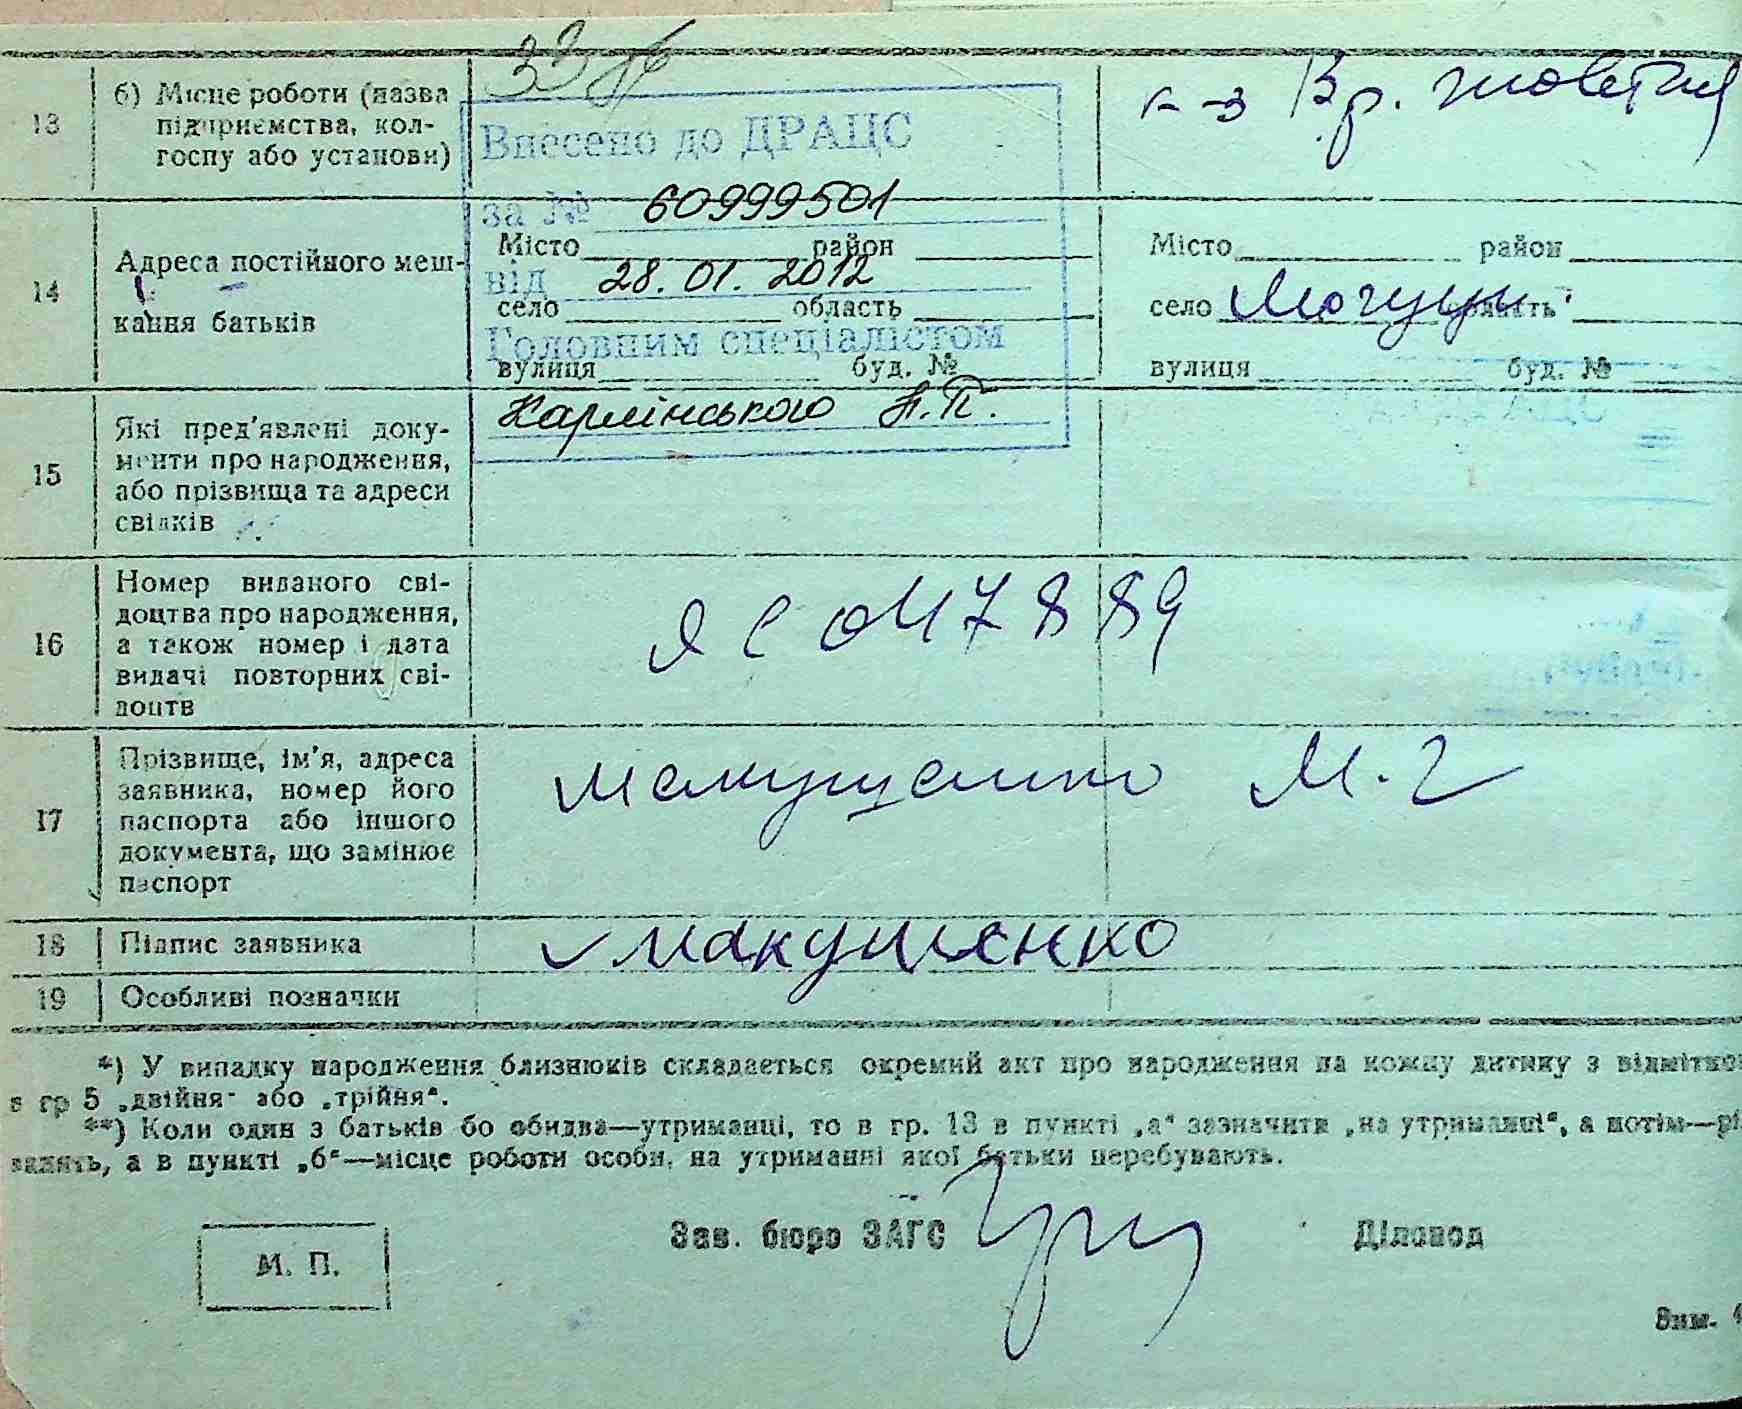 13
б) Місце роботи (назва
підприємства, кол-
госпу або установи)
33
к-з 13 р. жовтня
Внесено до ДРАЦС
за № 60999501
від 28.01.2012
Головним спеціалістом
Карлінського А.П.
14
Адреса постійного меш-
кання батьків
Місто район
село область
вулиця буд. №
Місто район
село область
вулиця буд. №
15
Які пред'явлені доку-
менти про народження,
або прізвища та адреси
свідків
16
Номер виданого сві-
доцтва про народження,
а також номер і дата
видачі повторних сві-
доцтв
ЯС 047889
17
Прізвище, ім'я, адреса
заявника, номер його
паспорта або іншого
документа, що замінює
паспорт
Макушенко М. Г
18
Підпис заявника
Макушенко
19
Особливі позначки
*) У випадку народження близнюків складається окремий акт про народження на кожну дитину з відмітко
в гр 5 „двійня" або „трійня".
**) Коли один з батьків бо обидва—утриманці, то в гр. 13 в пункті „а" зазначити „на утриманні", а потім—рі
а в пункті „б"—місце роботи особи, на утриманні якої батьки перебувають.
М. П.
Зав. бюро ЗАГС
Діловод
Зам.